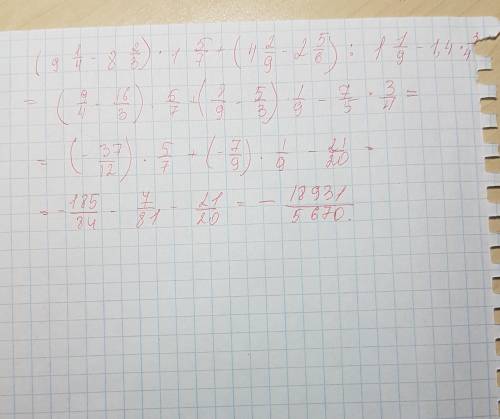 (9 1/4 - 8 2/3) · 1 5/7 + (4 2/9 - 2 5/6) : 1 1/9 - 1,4 · 3/4
= (9/4 - 16/3) · 5/7 · (1/9 - 5/3) · 1/9 - 7/5 · 3/4 =
= (- 37/12) · 5/7 + (- 7/9) · 1/9 - 21/20 =
= - 185/84 - 7/81 - 21/20 = - 18931/5670.